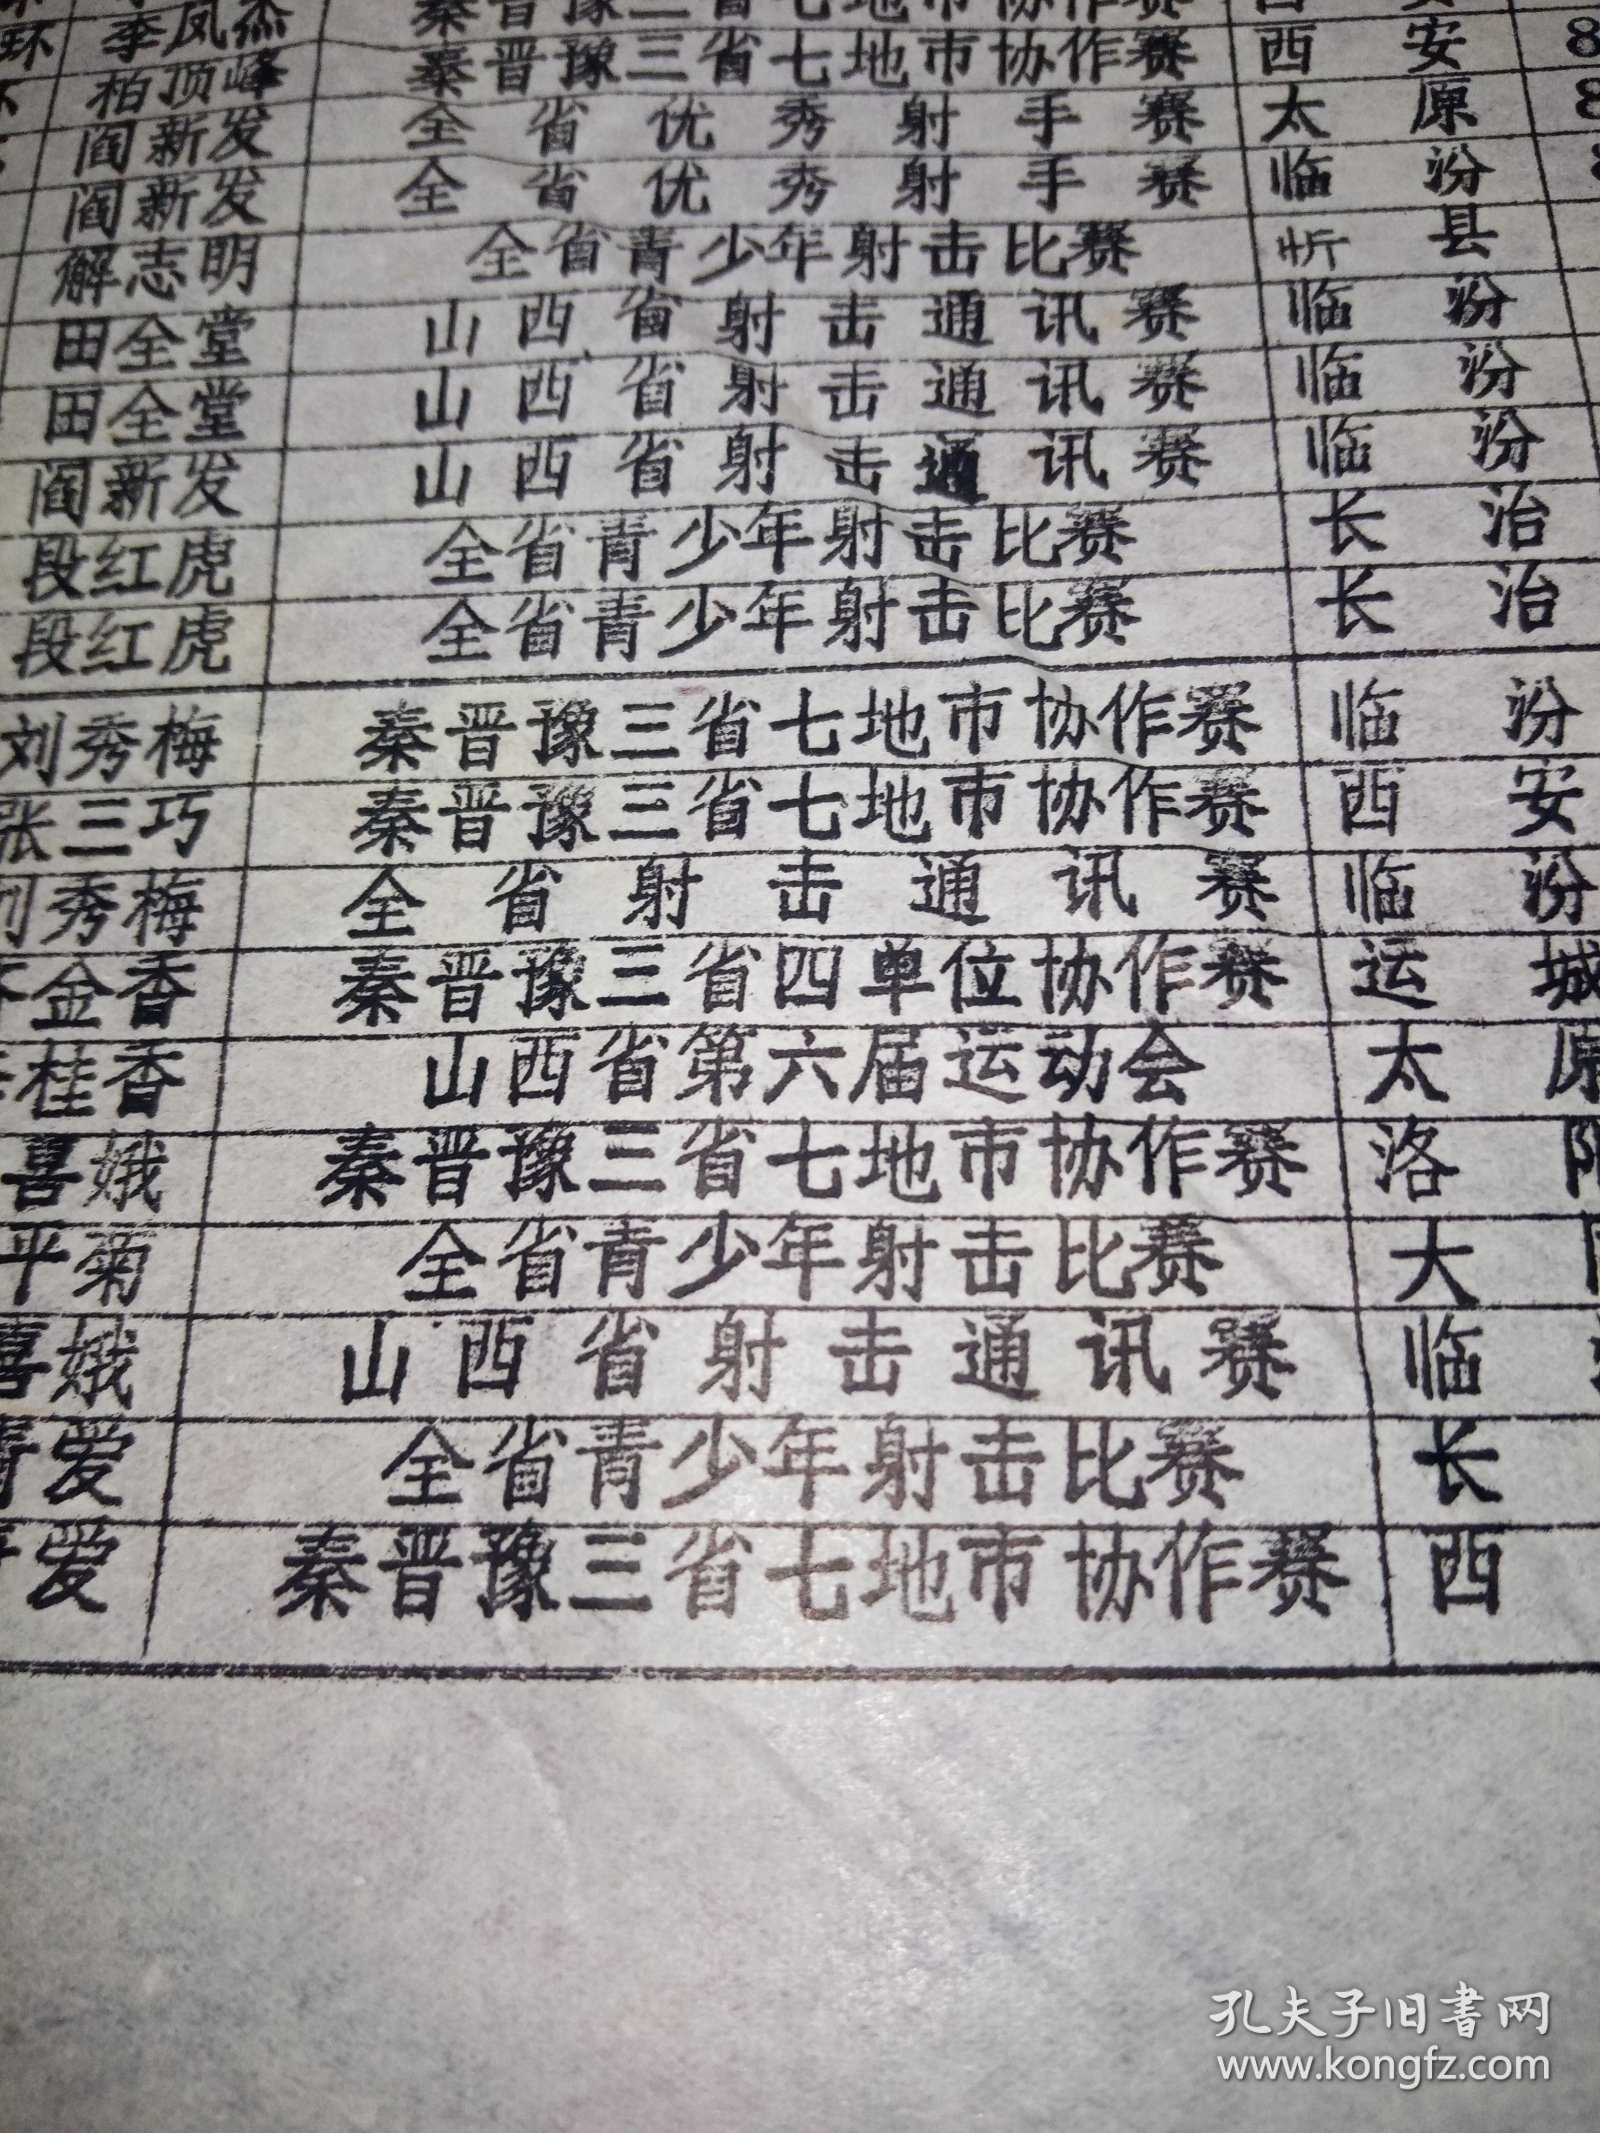 环 李凤杰 秦晋豫三省七地市协作赛 西安
柏顶峰 秦晋豫三省七地市协作赛 西安 8
阎新发 全省优秀射手赛 太原 8
阎新发 全省优秀射手赛 临汾
解志明 全省青少年射击比赛 忻县
田全堂 山西省射击通讯赛 临汾
田全堂 山西省射击通讯赛 临汾
阎新发 山西省射击通讯赛 临汾
段红虎 全省青少年射击比赛 长治
段红虎 全省青少年射击比赛 长治
刘秀梅 秦晋豫三省七地市协作赛 临汾
张三巧 秦晋豫三省七地市协作赛 西安
刘秀梅 全省射击通讯赛 临汾
金香 秦晋豫三省四单位协作赛 运城
桂香 山西省第六届运动会 太原
喜娥 秦晋豫三省七地市协作赛 洛阳
平菊 全省青少年射击比赛 大
喜娥 山西省射击通讯赛 临
爱 全省青少年射击比赛 长
爱 秦晋豫三省七地市协作赛 西
孔夫子旧书网
www.kongfz.com